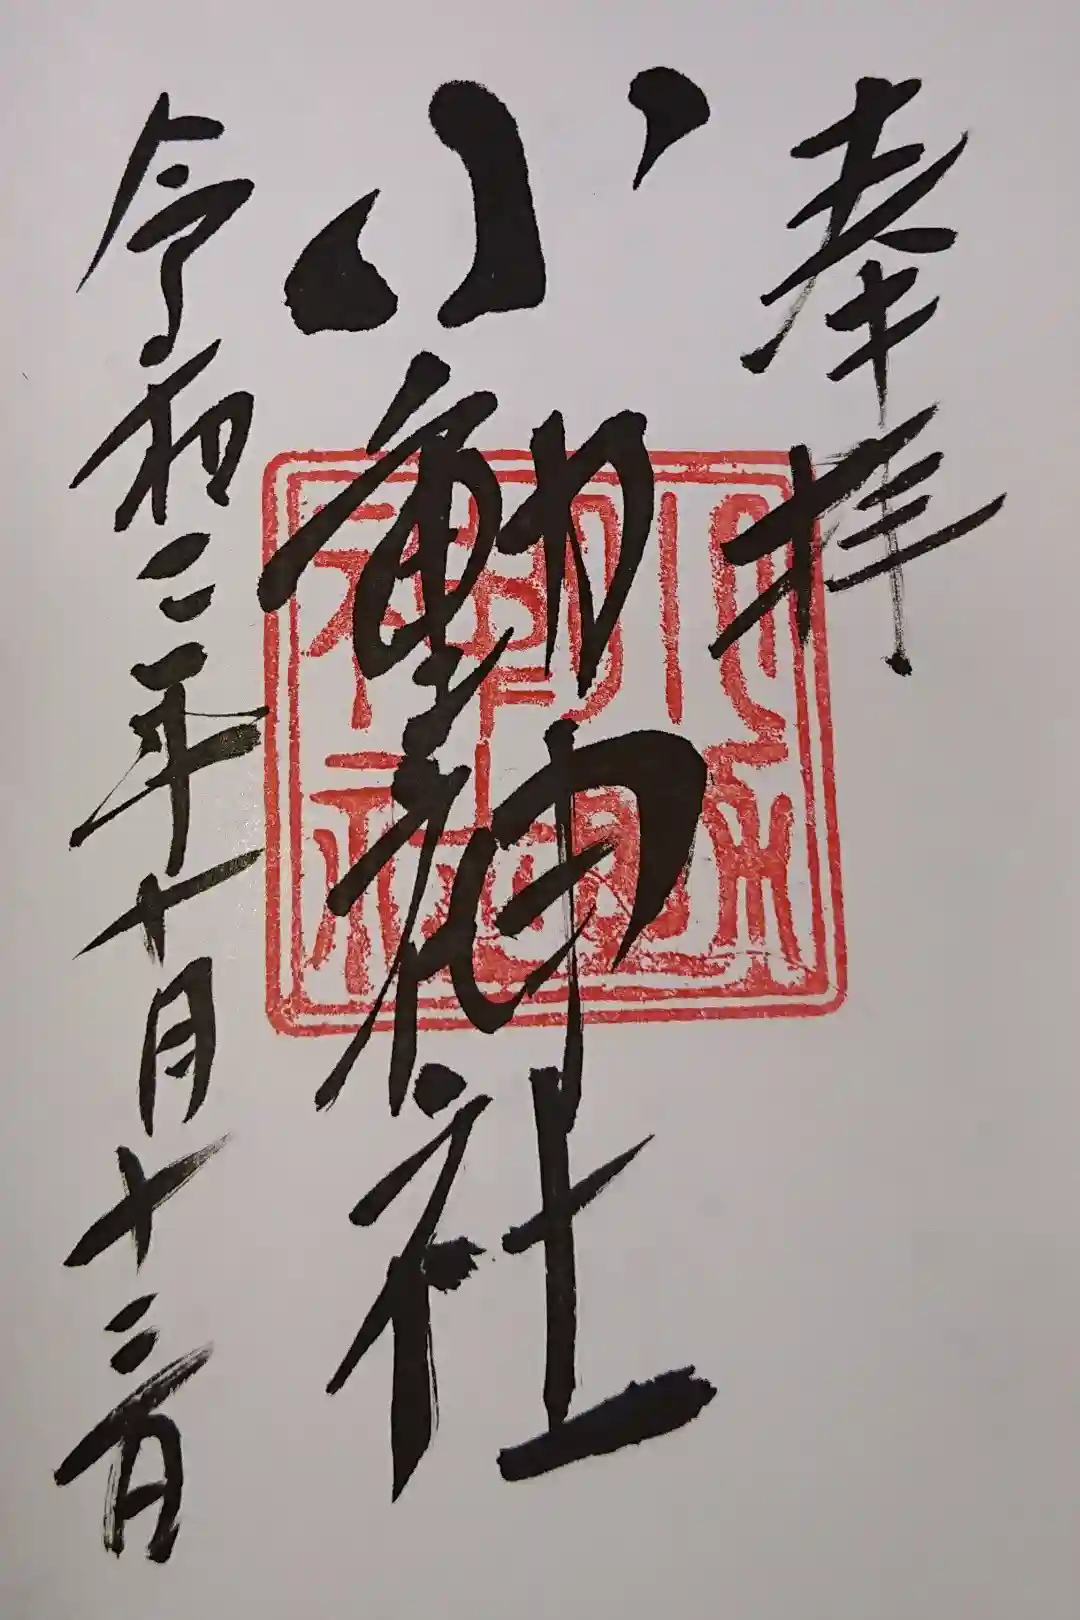 奉拝
小動神社
令和三年十月十三日